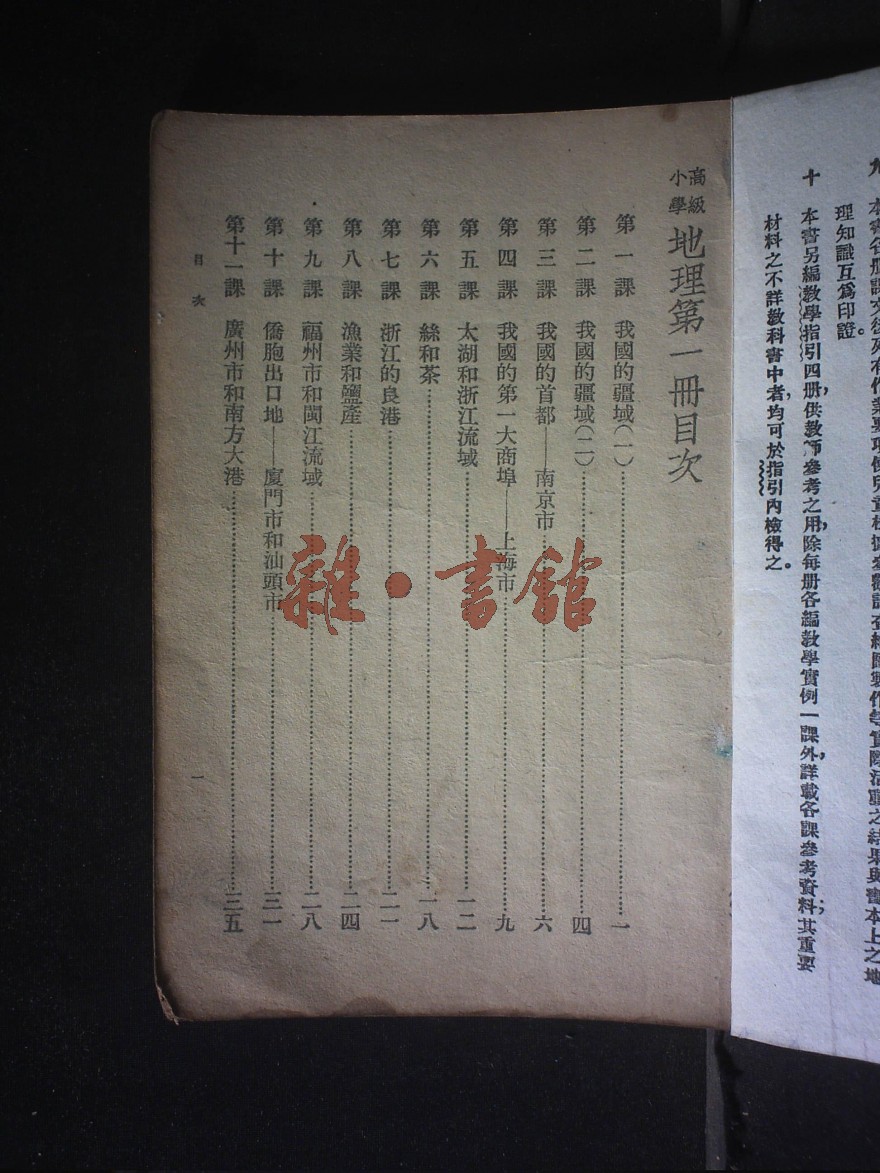 本書各册課文後列有作業要項使兒童根據參觀調查繪圖製作等實際活動之結果與書本上之地
理知識互爲印證。
十　本書另編教學指引四册，供教師參考之用，除每册各編教學實例一課外，詳載各課參考資料；其重要
材料之不詳教科書中者，均可於指引內檢得之。
高級小學 地理第一冊目次
第一課　我國的疆域(一)……一
第二課　我國的疆域(二)……四
第三課　我國的首都——南京市……六
第四課　我國的第一大商埠——上海市……九
第五課　太湖和浙江流域……一二
第六課　絲和茶……一八
第七課　浙江的良港……二一
第八課　漁業和鹽產……二四
第九課　福州市和閩江流域……二八
第十課　僑胞出口地——廈門市和汕頭市……三一
第十一課　廣州市和南方大港……三五
目次
一
雜·書館